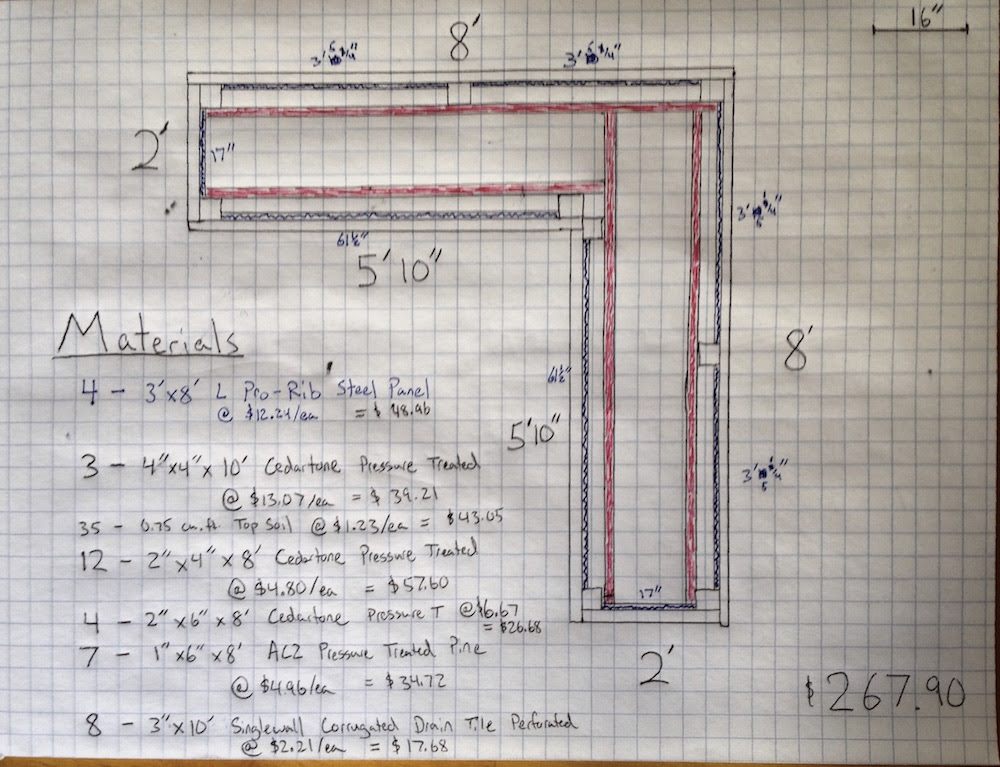 16"
8'
3' 5 1/4"
3' 5 1/4"
2'
17"
3' 5 1/4"
61½"
5'10"
Materials
8'
61½"
4 - 3'x8' L Pro-Rib Steel Panel
@ $12.24/ea = $48.96
5'10"
3 - 4"x4"x10' Cedartone Pressure Treated
@ $13.07/ea = $39.21
3' 5 1/4"
35 - 0.75 cu.ft. Top Soil @ $1.23/ea = $43.05
12 - 2"x4"x8' Cedartone Pressure Treated
@ $4.80/ea = $57.60
17"
4 - 2"x6"x8' Cedartone Pressure T @ $6.67
= $26.68
7 - 1"x6"x8' AC2 Pressure Treated Pine
@ $4.96/ea = $34.72
2'
$267.90
8 - 3"x10' Singlewall Corrugated Drain Tile Perforated
@ $2.21/ea = $17.68